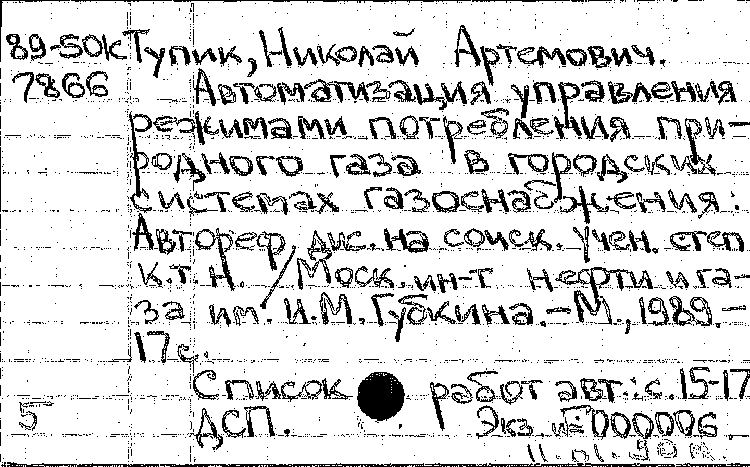 89-50к Тупик, Николай Артемович.
7866 Автоматизация управления
режимами потребления при-
родного газа в городских
системах газоснабжения:
Автореф. дис. на соиск. учен. степ.
к.т.н. / Моск. ин-т нефти и га-
за им. И.М. Губкина. - М., 1989. -
17 с.
Список работ авт.: с. 15-17
5 ДСП. Экз. №000006
11.01.90